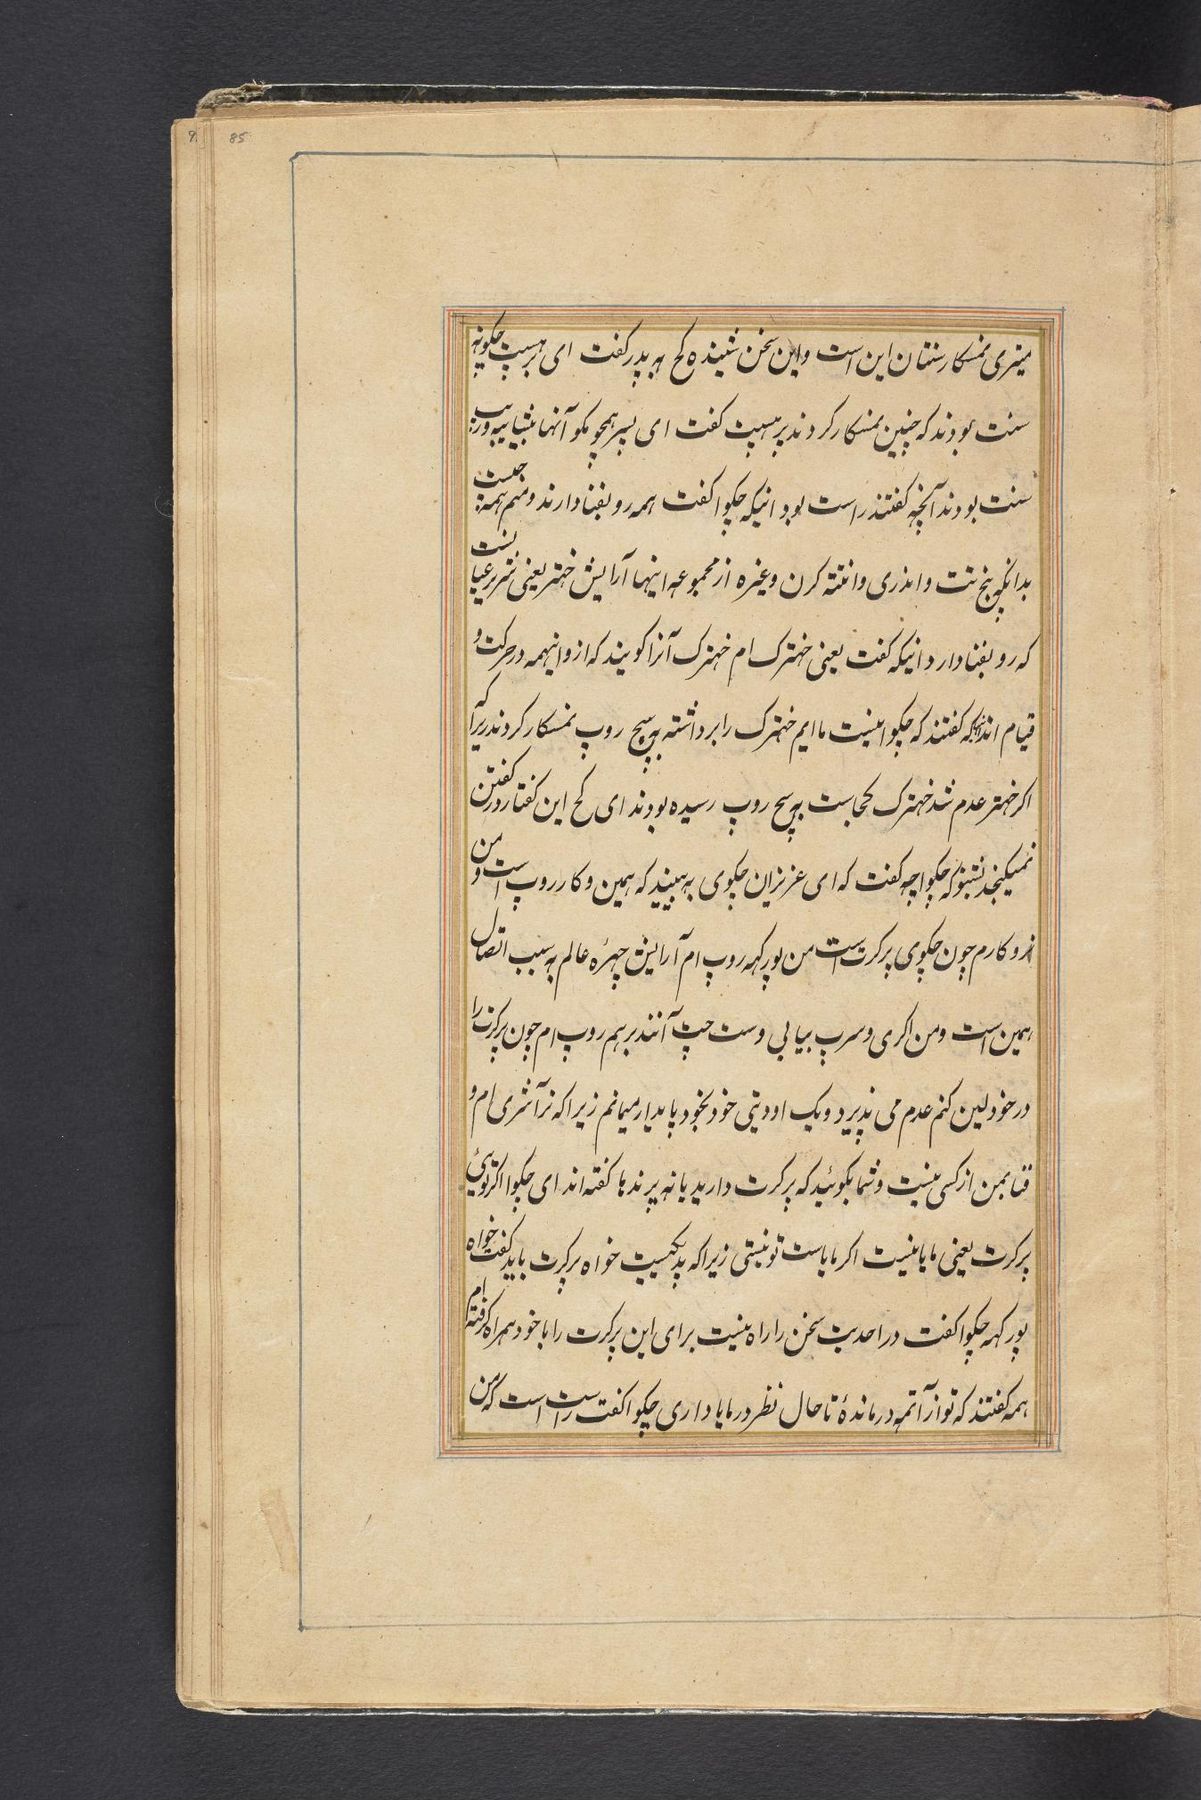 85
میتری نمسکار سنتان این است و این سخن شنیده کج به پدر گفت ای برهسپت چگونه
سنت بودند که چنین نمسکار کردند برهسپت گفت ای پسر همچو مگو آنها
سنت بودند آنچه گفتند راست بود اینکه چکوا گفت همه رو بفنا دارند و منهم همه
بدانکه پنج تت و اندری و انتته کرن و غیره از مجموعه اینها آرایش خهتر یعنی شریر
که رو بفنا دارد اینکه گفت یعنی خهترک ام خهترک آنرا گویند که از و اینهمه در حرکت و
قیام اند اینکه گفتند که چکوا نیست ما ایم خهترک را برداشته به هیچ روپ نمسکار کردند زیرا که
اگر خهتر عدم شد خهترک کجاست به هیچ روپ رسیده بودند ای کج این گفتار در گفتن
نمیگنجد بشنو که چکوا چه گفت که ای عزیزان چکوی به بینید که همین و کار روپ است و من
نروکارم چون چکوی پرکرت است من پورکهه روپ ام آرایش چهرهٔ عالم به سبب اتصال
همین است و من اکری و سرب بیاپی و ست چت آنند برهم روپ ام چون پرکرت را
در خود لین کنم عدم می پذیرد و یک اودیتی خود بخود پایدار میمانم زیرا که نرآشری ام و
فنا بمن از کسی نیست و شما بگوئید که پرکرت دارید یا نه پرندها گفته اند ای چکوا اگر توئی
پرکرت یعنی مایا نیست اگر مایاست تو نیستی زیرا که پد یکیست خواه پرکرت باید گفت خواه
پورکهه چکوا گفت در احدیت سخن را راه نیست برای این پرکرت را با خود همراه گرفته ام
همه گفتند که تو از آتمه درماندهٔ تا حال نظر در مایا داری چکوا گفت راست است که من